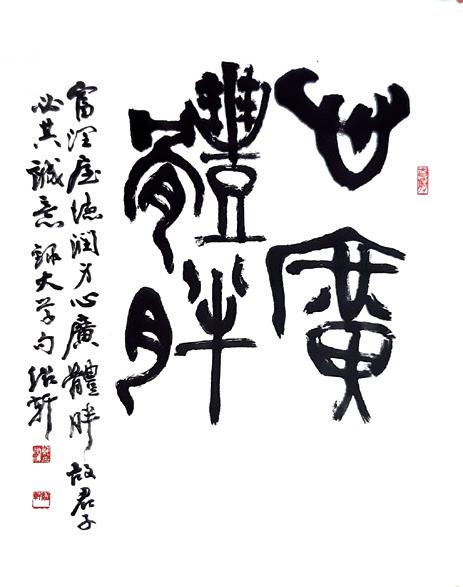 心廣
體胖
富润屋德潤身心廣體胖故君子
必其誠意錄大學句